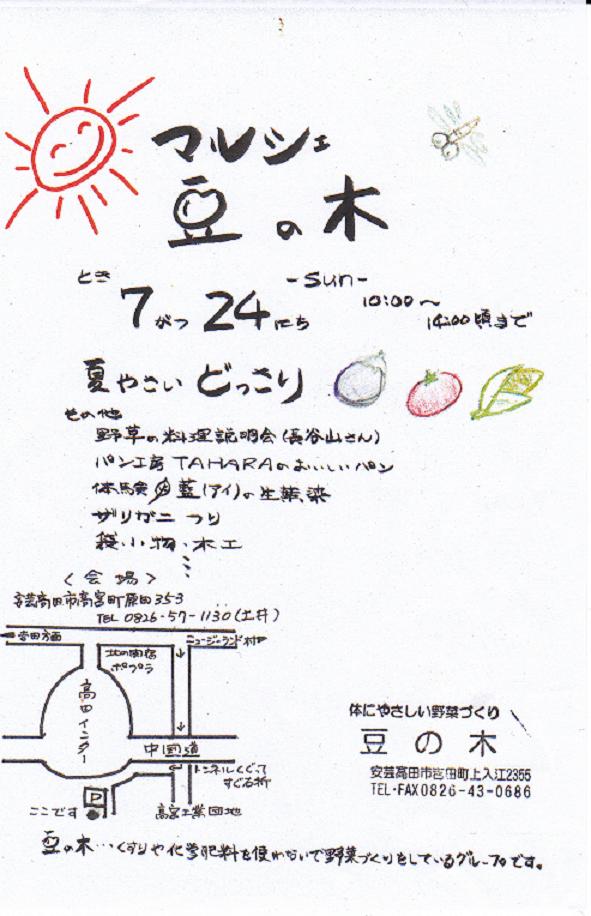 マルシェ
豆の木
とき
7がつ24にち
-Sun-
10:00〜
14:00頃まで
夏やさい どっさり
その他
野草の料理説明会(長谷山さん)
パン工房TAHARAのおいしいパン
体験 藍(アイ)の生葉染
ザリガニつり
袋小物・木工
〈会場〉
安芸高田市高宮町原田353
TEL 0826-57-1130(土井)
吉田方面
ニュージーランド村
北の街宿
ポプラ
高田インター
中国道
トンネルくぐって
すぐ右折
P
ここです
高宮工業団地
体にやさしい野菜づくり
豆の木
安芸高田市吉田町上入江2355
TEL・FAX0826-43-0686
豆の木…くすりや化学肥料を使わないで野菜づくりをしているグループです。